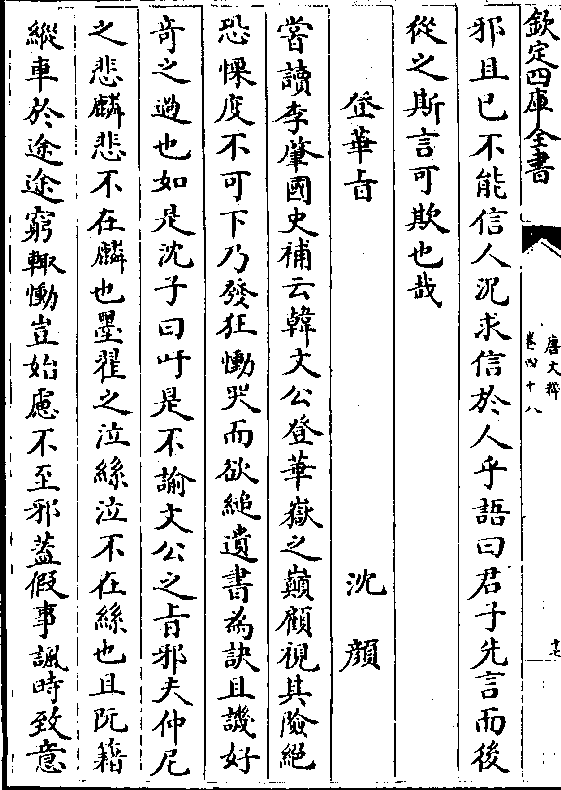 欽定四庫全書
唐文粹
卷四十八
邪且已不能信人況求信於人乎語曰君子先言而後
從之斯言可欺也哉
登華旨
沈顔
嘗讀李肇國史補云韓文公登華嶽之巔顧視其險絕
恐慄度不可下乃發狂慟哭而欲縋遺書為訣且譏好
竒之過也如是沈子曰吁是不諭文公之旨邪夫仲尼
之悲麟悲不在麟也墨翟之泣絲泣不在絲也且阮籍
縱車於途途窮輙慟豈始慮不至邪葢假事諷時致意